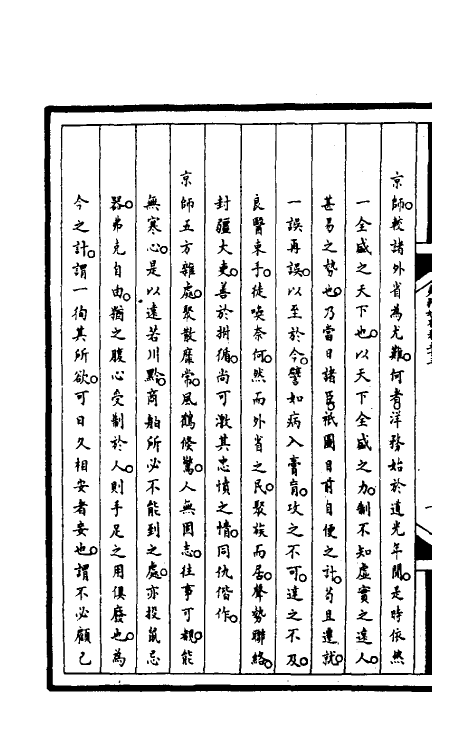 京師。較諸外省為尤難。何者。洋務始於道光年間。是時依然
一全盛之天下也。以天下全盛之力。制不知虛實之遠人。
甚易之勢也。乃當日諸臣。祇圖目前自便之計。苟且遷就。
一誤再誤。以至於今。譬如病入膏肓。攻之不可。達之不及。
良醫束手。徒喚奈何。然而外省之民。聚族而居。聲勢聯絡。
封疆大吏。善於拊循。尚可激其忠憤之情。同仇偕作。
京師五方雜處。聚散靡常。風鶴倏驚。人無固志。往事可觀。能
無寒心。是以遠若川黔。商舶所必不能到之處。亦投鼠忌
器。弗克自由。猶之腹心受制於人。則手足之用俱廢也。為
今之計。謂一徇其所欲。可日久相安者妄也。謂不必顧己